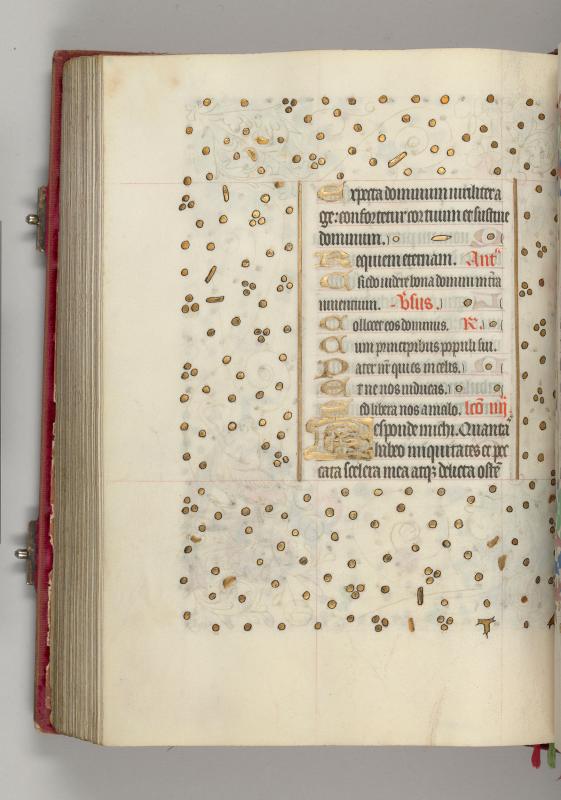 Expecta dominum viriliter a
ge: confortetur cor tuum et sustine
dominum.
Requiem eternam. Ant̄
Credo videre bona domini in t̄ra
viventium. V̄sus.
Collocet eos dominus. R̄.
Cum principibus populi sui.
Pater nr̄ qui es in celis.
Et ne nos inducas.
Sed libera nos a malo. lcō iiij
Responde michi. Quanta
habeo iniquitates et pec
cata scelera mea atqꝫ delicta ostē